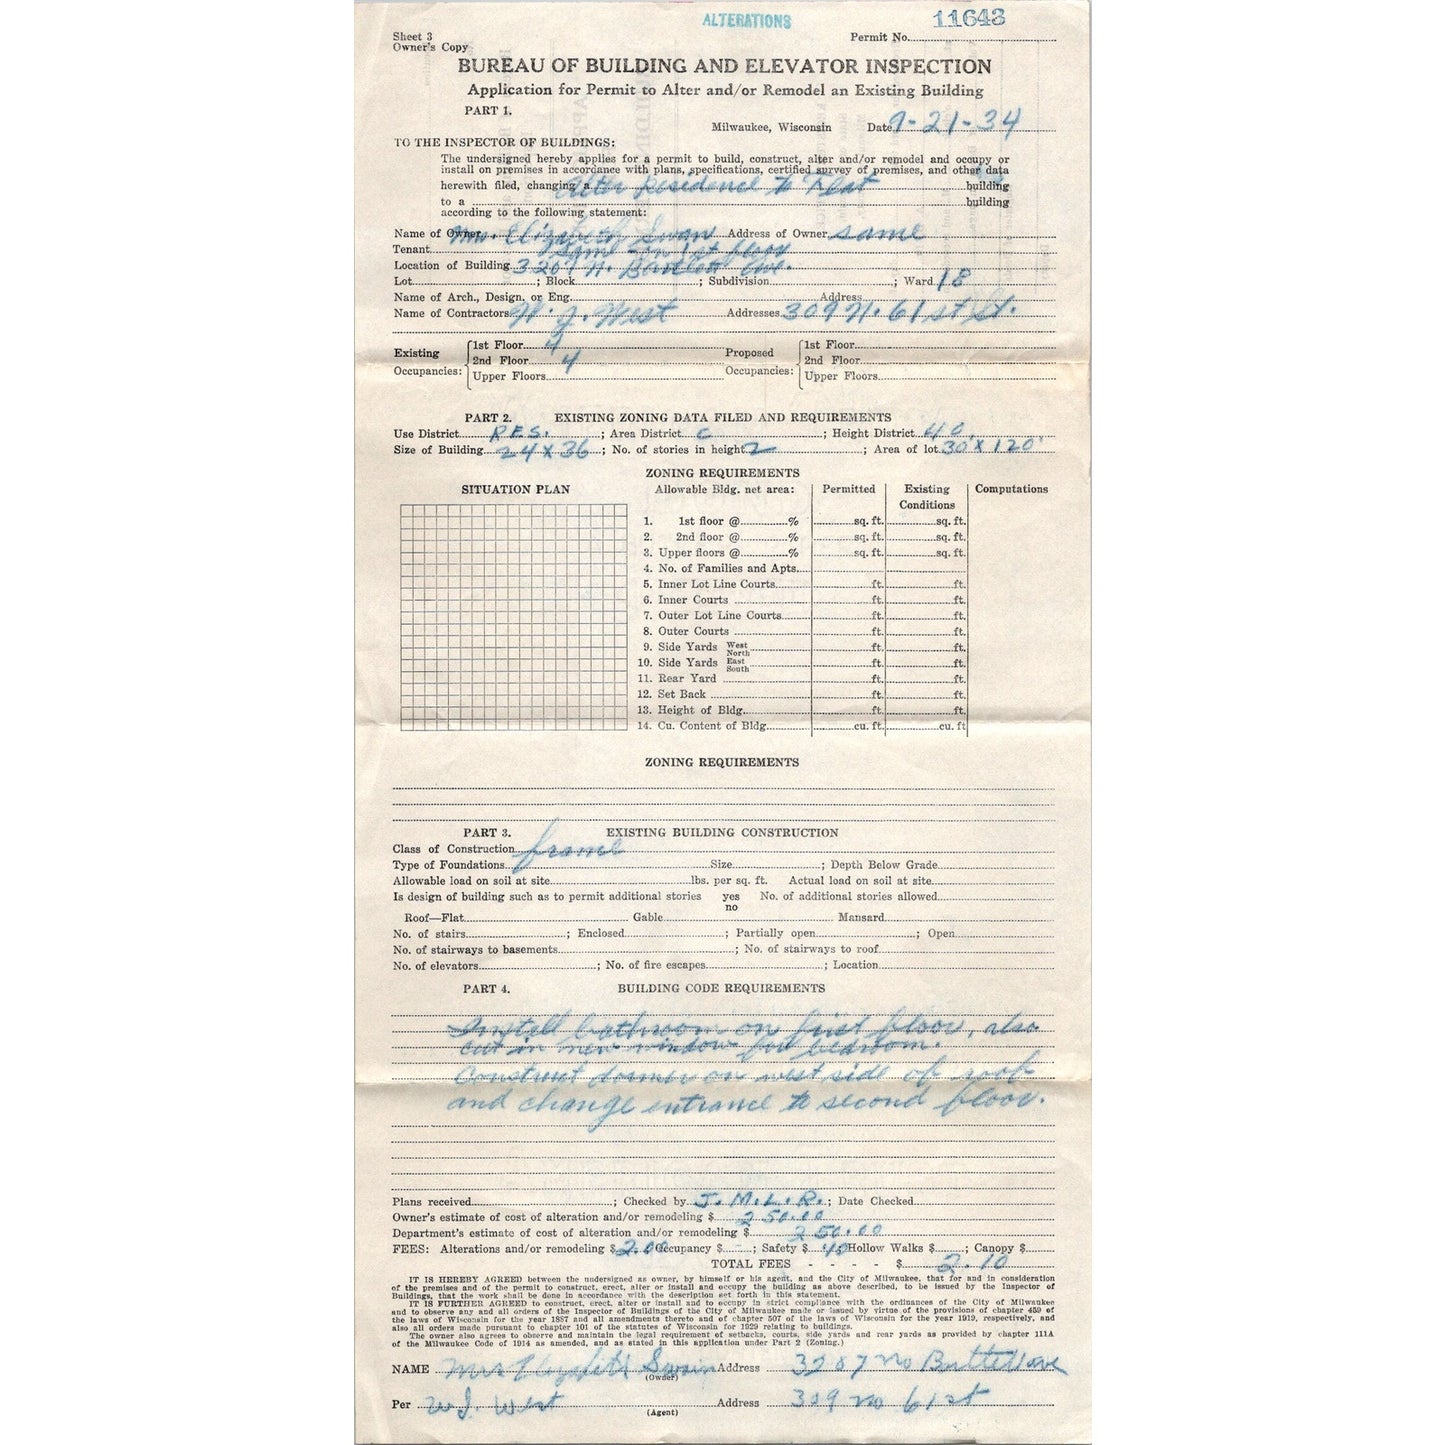 ALTERATIONS
11643
Sheet 3
Owner's Copy
Permit No.
BUREAU OF BUILDING AND ELEVATOR INSPECTION
Application for Permit to Alter and/or Remodel an Existing Building
PART 1.
Milwaukee, Wisconsin Date 9-21-34
TO THE INSPECTOR OF BUILDINGS:
The undersigned hereby applies for a permit to build, construct, alter and/or remodel and occupy or
install on premises in accordance with plans, specifications, certified survey of premises, and other data
herewith filed, changing a Alter Residence to Flat building
to a building
according to the following statement:
Name of Owner Mrs. Elizabeth Swan Address of Owner same
Tenant Same on 1st floor
Location of Building 3207 N. Bartlett Ave.
Lot ; Block ; Subdivision ; Ward 18
Name of Arch., Design. or Eng. Address
Name of Contractors W. J. West Addresses 309 N. 61st St.
Existing Occupancies: 1st Floor 4 Proposed Occupancies: 1st Floor
2nd Floor 4 2nd Floor
Upper Floors Upper Floors
PART 2. EXISTING ZONING DATA FILED AND REQUIREMENTS
Use District RES. ; Area District C ; Height District 40
Size of Building 24 x 36 ; No. of stories in height 2 ; Area of lot 30' x 120'
ZONING REQUIREMENTS
SITUATION PLAN
Allowable Bldg. net area: Permitted Existing Conditions Computations
1. 1st floor @ % sq. ft. sq. ft.
2. 2nd floor @ % sq. ft. sq. ft.
3. Upper floors @ % sq. ft. sq. ft.
4. No. of Families and Apts.
5. Inner Lot Line Courts ft. ft.
6. Inner Courts ft. ft.
7. Outer Lot Line Courts ft. ft.
8. Outer Courts ft. ft.
9. Side Yards West North ft. ft.
10. Side Yards East South ft. ft.
11. Rear Yard ft. ft.
12. Set Back ft. ft.
13. Height of Bldg. ft. ft.
14. Cu. Content of Bldg. cu. ft. cu. ft
ZONING REQUIREMENTS
PART 3. EXISTING BUILDING CONSTRUCTION
Class of Construction frame
Type of Foundations Size ; Depth Below Grade
Allowable load on soil at site lbs. per sq. ft. Actual load on soil at site
Is design of building such as to permit additional stories yes no No. of additional stories allowed
Roof—Flat Gable Mansard
No. of stairs ; Enclosed ; Partially open ; Open
No. of stairways to basements ; No. of stairways to roof
No. of elevators ; No. of fire escapes ; Location
PART 4. BUILDING CODE REQUIREMENTS
Install bathroom on first floor, also
cut in new window for bedroom.
Construct dormer on west side of roof
and change entrance to second floor.
Plans received ; Checked by J. M. L. R. ; Date Checked
Owner's estimate of cost of alteration and/or remodeling $ 250.00
Department's estimate of cost of alteration and/or remodeling $ 250.00
FEES: Alterations and/or remodeling $ 2.00 Occupancy $ ; Safety $ .10 Hollow Walks $ ; Canopy $
TOTAL FEES - - - - $ 2.10
IT IS HEREBY AGREED between the undersigned as owner, by himself or his agent, and the City of Milwaukee, that for and in consideration
of the premises and of the permit to construct, erect, alter or install and occupy the building as above described, to be issued by the Inspector of
Buildings, that the work shall be done in accordance with the description set forth in this statement.
IT IS FURTHER AGREED to construct, erect, alter or install and to occupy in strict compliance with the ordinances of the City of Milwaukee
and to observe any and all orders of the Inspector of Buildings of the City of Milwaukee made or issued by virtue of the provisions of chapter 459 of
the laws of Wisconsin for the year 1887 and all amendments thereto and of chapter 507 of the laws of Wisconsin for the year 1919, respectively, and
also all orders made pursuant to chapter 101 of the statutes of Wisconsin for 1929 relating to buildings.
The owner also agrees to observe and maintain the legal requirement of setbacks, courts, side yards and rear yards as provided by chapter 111A
of the Milwaukee Code of 1914 as amended, and as stated in this application under Part 2 (Zoning.)
NAME Mrs Elizabeth Swain Address 3207 No
(Owner)
Per W J. West Address 309 no 61 st
(Agent)